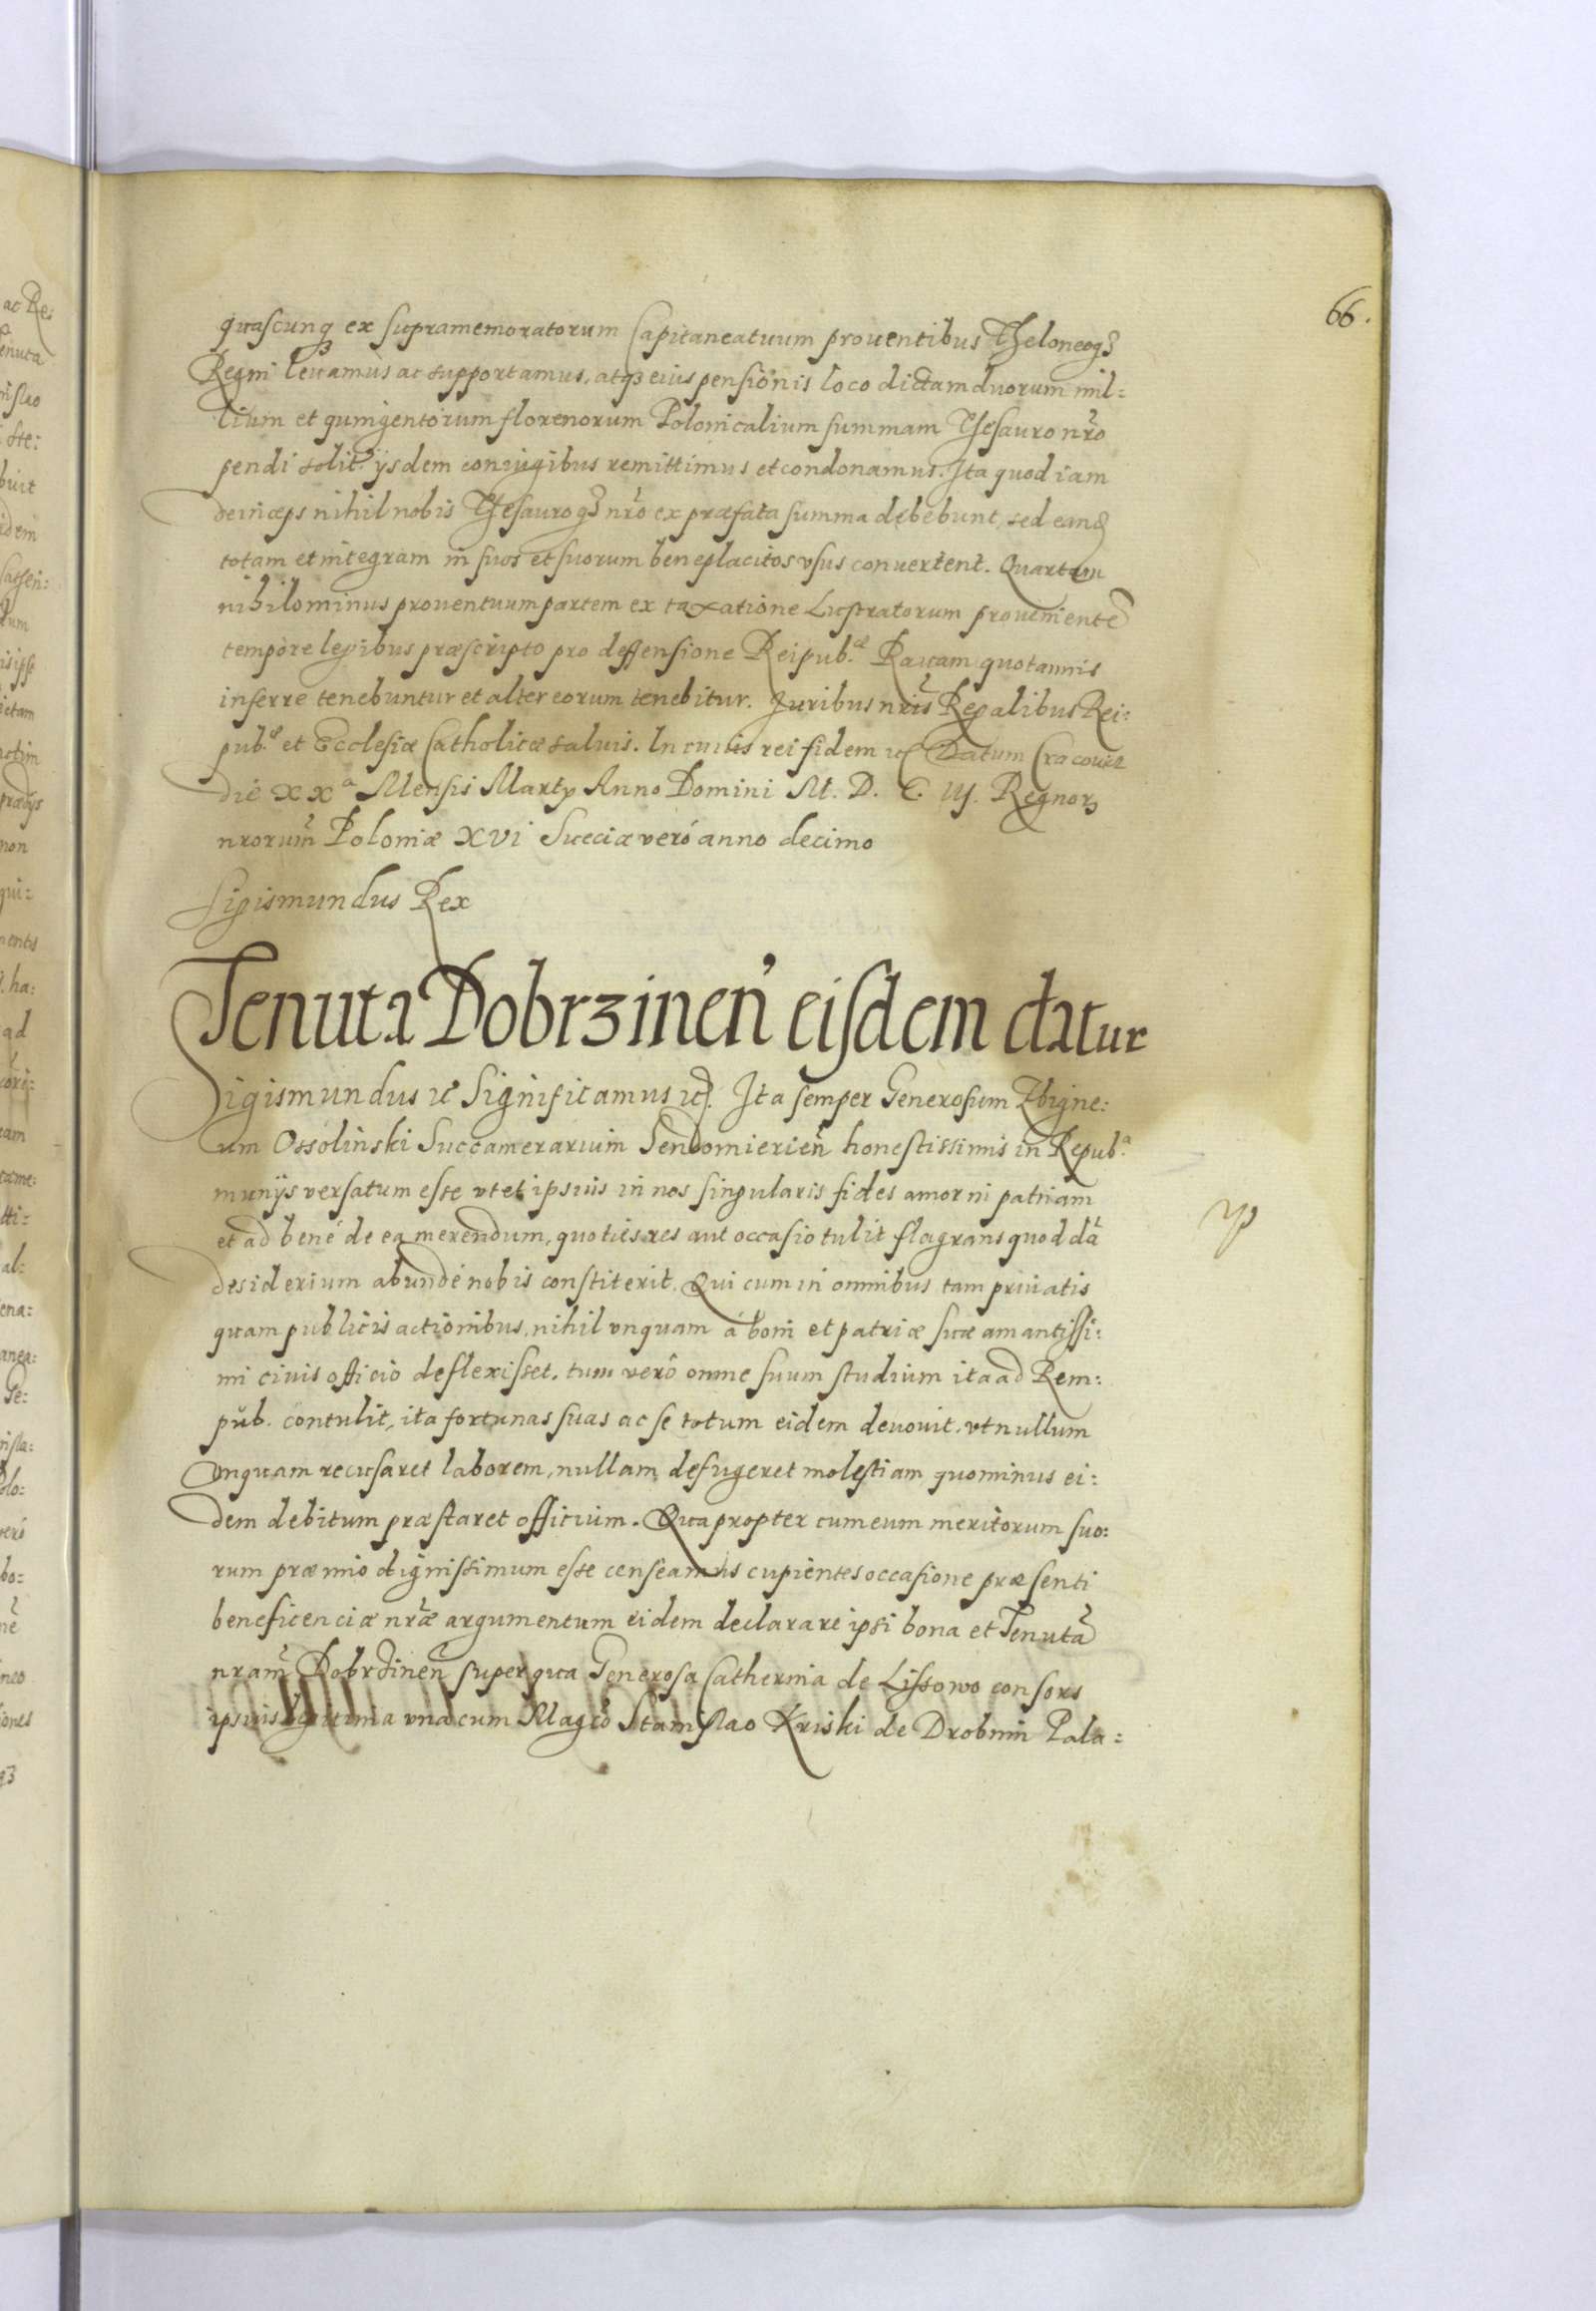 66.
quascunq3 ex supramemoratorum Capitaneatuum prouentibus Theloneoq3
Regni leuamus ac supportamus, atq3 eius pensionis loco dictam duorum mil:
lium et quingentorum florenorum Polonicalium summam Thesauro nro
pendi solit. ijsdem coniugibus remittimus et condonamus. Ita quod iam
deinceps nihil nobis Thesauroq3 nro ex præfata summa debebunt, sed eand
totam et integram in suos et suorum beneplacitos vsus conuertent. Quartam
nihilominus prouentuum partem ex taxatione Lustratorum prouenientē
tempore legibus præscripto pro deffensione Reipub.æ Rauam quotannis
inferre tenebuntur et alter eorum tenebitur. Juribus nris Regalibus Rei:
pub.æ et Ecclesiæ Catholicæ saluis. In cuius rei fidem etc Datum Cracouiæ
die XXa Mensis Martÿ Anno Domini M. D. C. IIJ. Regnor
nrorum Poloniæ XVI Sueciæ veró anno decimo
Sigismundus Rex
Tenuta Dobrzinen eisdem datur
Sigismundus etc Significamus etc. Ita semper Generosum Zbigne:
um Ossolinski Succamerarium Sendomierien honestissimis in Repub.a
munijs versatum esse vt et ipsius in nos singularis fides amor ni patriam
et ad bené de ea merendum, quoties res aut occasio tulit flagrans quoddā
desiderium abundé nobis constiterit. Qui cum in omnibus tam priuatis
quam publicis actionibus, nihil vnquam á boni et patriæ suæ amantissi:
mi ciuis officio deflexisset, tum verô omne suum studium ita ad Rem:
pub. contulit, ita fortunas suas ac se totum eidem deuouit, vt nullum
vnquam recusaret laborem, nullam defugeret molestiam quominus ei:
dem debitum præstaret officium. Quapropter cum eum meritorum suo:
rum præmio dignissimum esse censeamus cupientes occasione præsenti
beneficenciæ nræ argumentum eidem declarare ipsi bona et Tenutā
nram Dobrzinen super qua Generosa Catherina de Lissowo consors
ipsius legitima vna cum Magco Stanislao Kriski de Drobnin Pala: